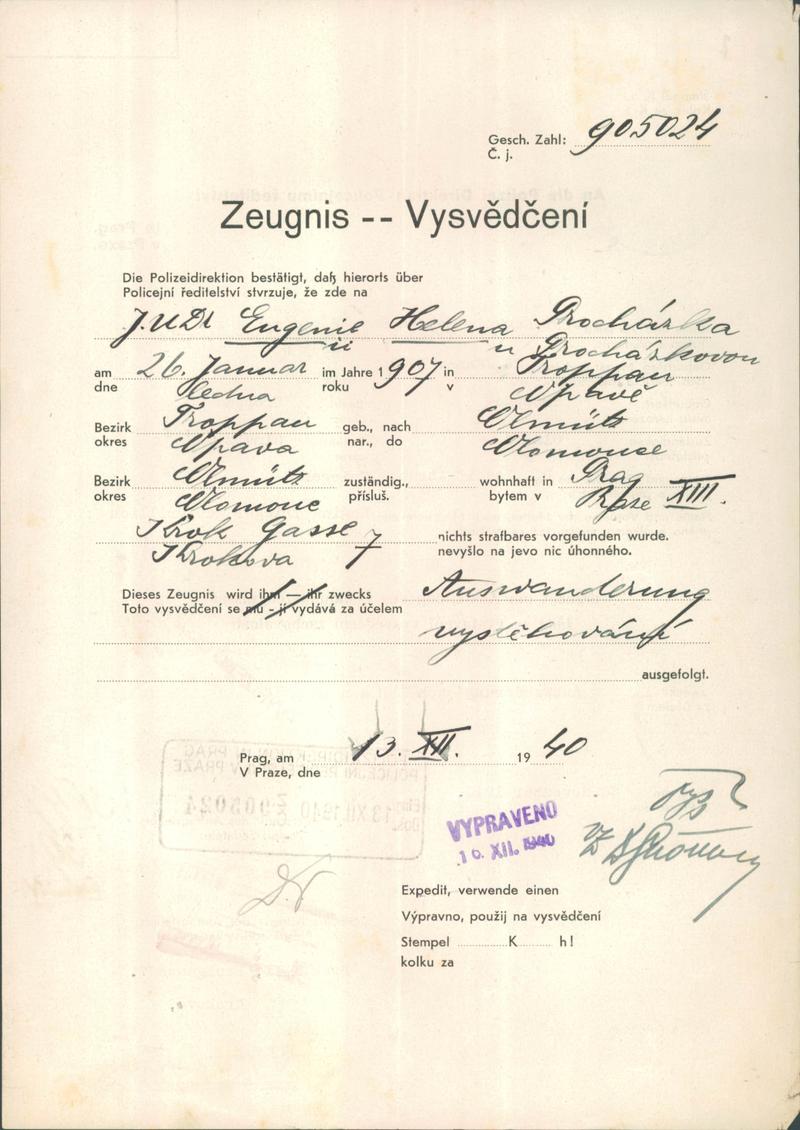 Gesch. Zahl: 905024
Č. j.
Zeugnis -- Vysvědčení
Die Polizeidirektion bestätigt, daß hierorts über
Policejní ředitelství stvrzuje, že zde na
J.UDr Eugenie Helena Procházka
ii u Procházkovou
am 26. Januar im Jahre 1907 in Troppau
dne ledna roku v Opavě
Bezirk Troppau geb., nach Olmütz
okres Opava nar., do Olomouce
Bezirk Olmütz zuständig., wohnhaft in Prag
okres Olomouc přísluš. bytem v Praze XIII.
Krok Gasse 7 nichts strafbares vorgefunden wurde.
Krokova nevyšlo na jevo nic úhonného.
Dieses Zeugnis wird ihm — ihr zwecks Auswanderung
Toto vysvědčení se mu - jí vydává za účelem
vystěhování
ausgefolgt.
Prag, am 13. XII. 1940
V Praze, dne
VYPRAVENO
16. XII. 1940
Expedit, verwende einen
Výpravno, použij na vysvědčení
Stempel K h!
kolku za